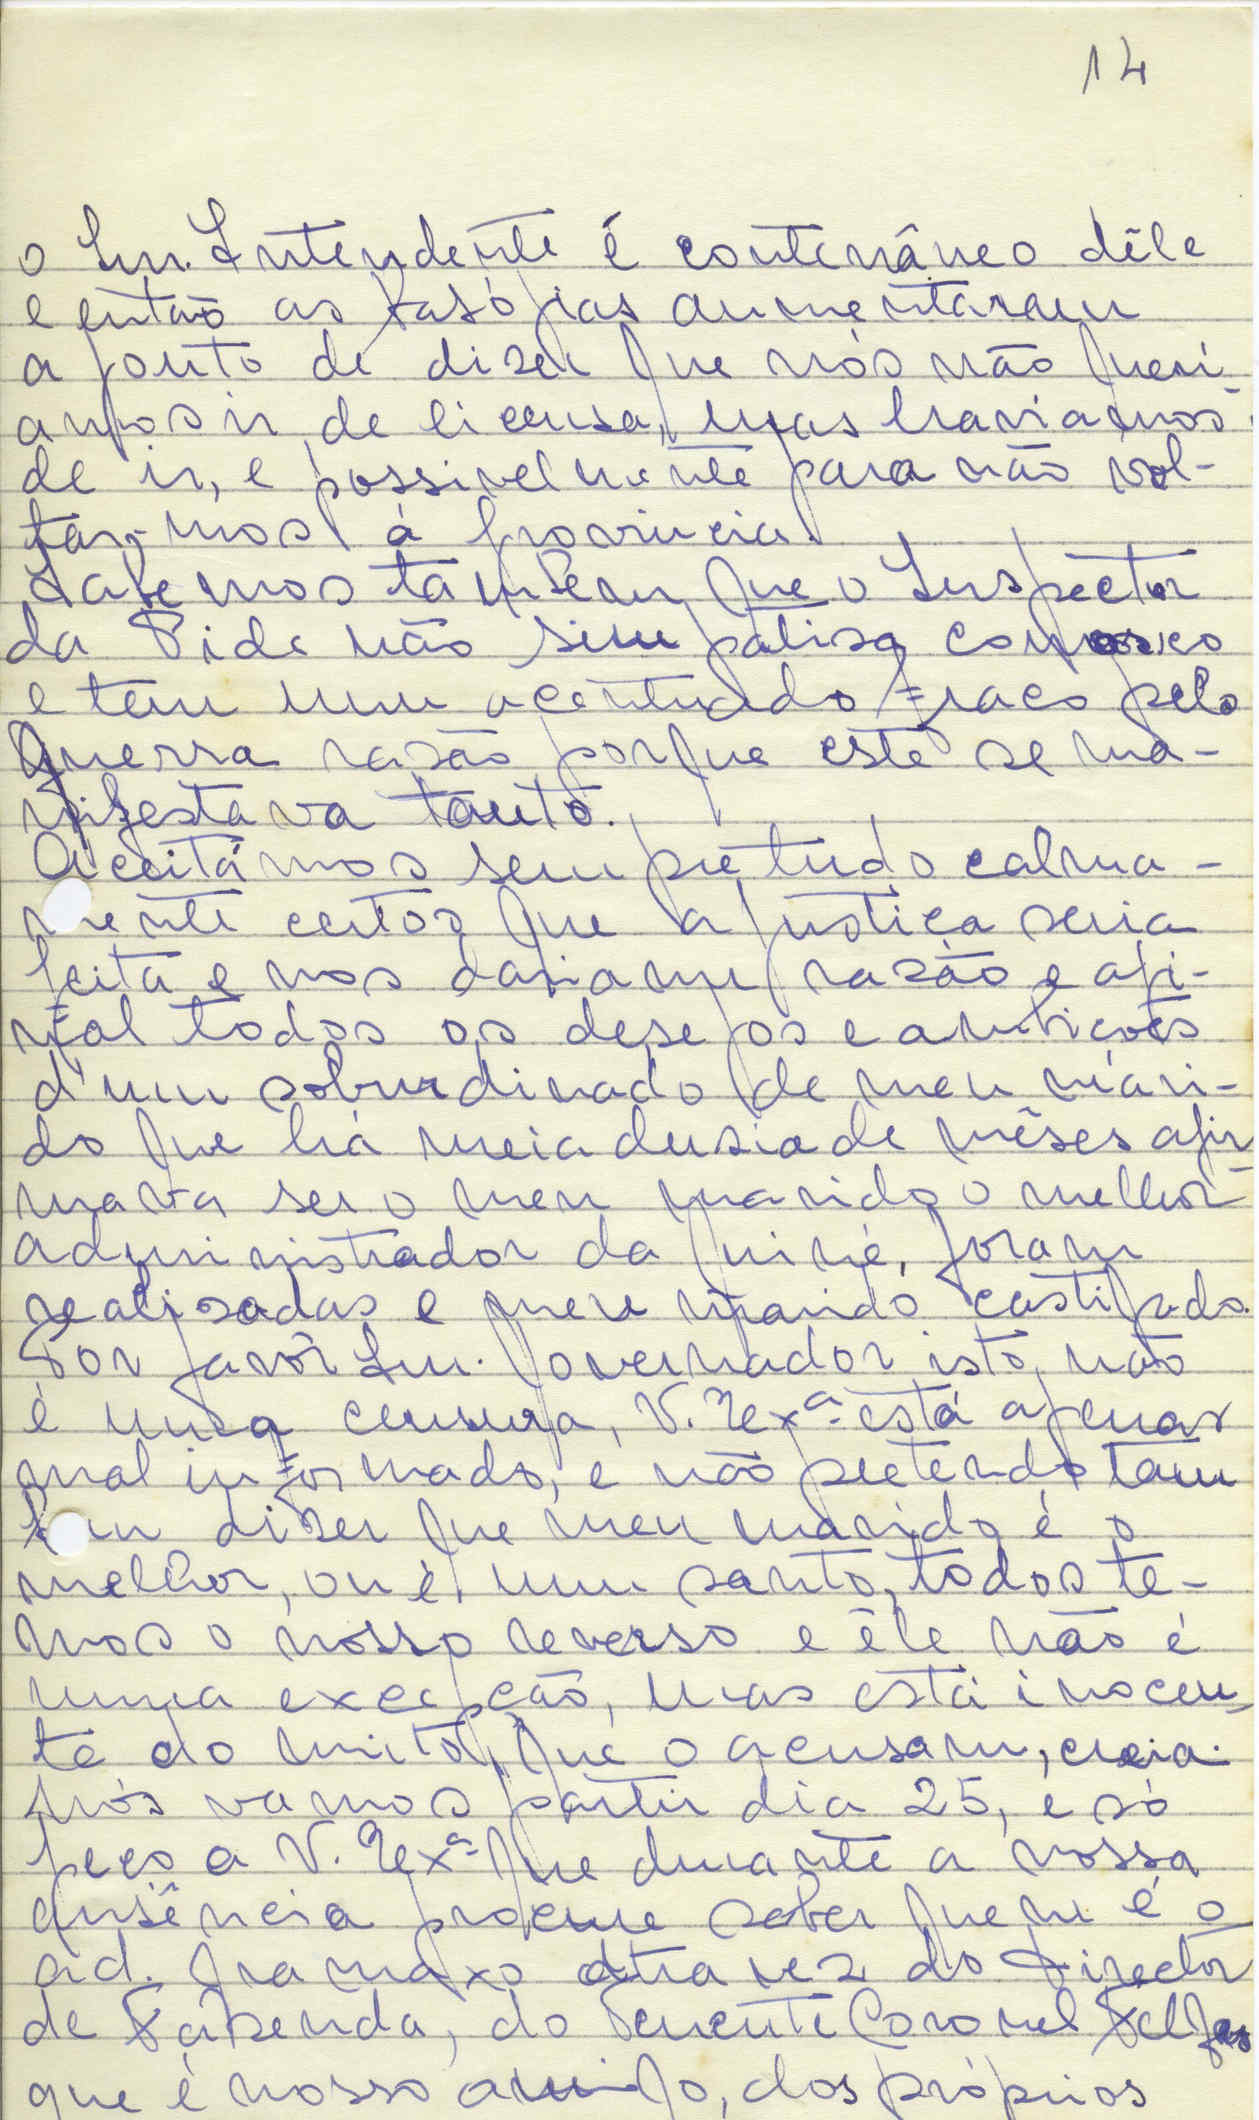 14
o Snr. Intendente é conterrâneo dêle
e então as basófias aumentaram
a ponto de dizer que nós não queri-
amos ir de licensa, mas haviamos
de ir, e possivelmente para não vol-
tar-mos á Provincia.
Sabemos tambem que o Inspector
da Pide não simpatisa connosco
e tem um acentuado fraco pelo
Guerra razão porque este se ma-
nifestava tanto.
Aceitámos sempre tudo calma-
mente certos que a justiça seria
feita e nos dariam razão e afi-
nal todos os desejos e ambições
d'um sobordinado de meu mari-
do que há meia dusia de mêses afir-
mava ser o meu marido o melhor
administrador da Guiné, foram
realisadas e meu marido castigado.
Por favôr Snr. Governador isto não
é uma censura, V. Exª está apenas
mal informado, e não pretendo tam
bem dizer que meu marido é o
melhor, ou é um santo, todos te-
mos o nosso reverso e êle não é
uma excepção, mas está inocen-
te do muito que o acusam, creia.
Nós vamos partir dia 25, e só
peço a V. Exª que durante a nossa
ausência procure saber quem é o
ad. Gramaxo atra vez do Director
de Fazenda, do Tenente Coronel Felgas
que é nosso amigo, dos próprios